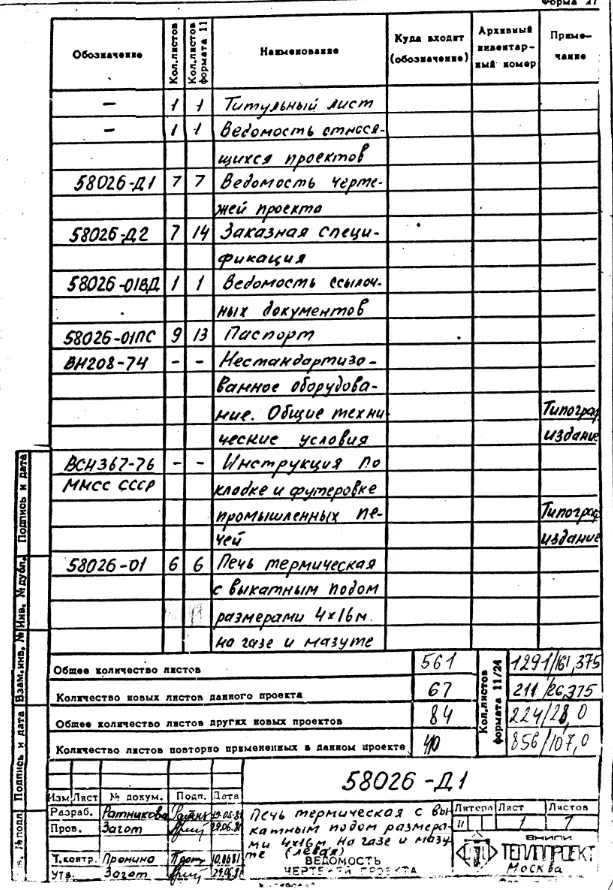 Форма 21
Обозначение Кол.листов Кол.листов формата 11 Наименование Куда входит (обозначение) Архивный инвентар- ный номер Приме- чание
— 1 1 Титульный лист
— 1 1 Ведомость относя-
щихся проектов
58026-Д1 7 7 Ведомость черте-
жей проекта
58026-Д2 7 14 Заказная специ-
фикация
58026-01ВД 1 1 Ведомость ссылоч-
ных документов
58026-01ПС 9 13 Паспорт
ВН208-74 - - Нестандартизо-
ванное оборудова-
ние. Общие техни Типограф
ческие условия издание
ВСН367-76 - - Инструкция по
ММСС СССР кладке и футеровке
промышленных пе- Типограф
чей издание
58026-01 6 6 Печь термическая
с выкатным подом
размерами 4х16м.
на газе и мазуте
Общее количество листов 561 1291/161,375
Количество новых листов данного проекта 67 211/26,375
Общее количество листов других новых проектов 84 224/28,0
Количество листов повторно примененных в данном проекте 410 856/107,0
Кол.листов формата 11/24
Подпись и дата
Инв. № дубл.
Взам.инв. №
Подпись и дата
№ подл
58026-Д1
Изм Лист № докум. Подп. Дата
Разраб. Ратникова
Пров. Загот
Т.контр. Пронина
Утв. Загот
Печь термическая с вы-
катным подом размера-
ми 4х16м на газе и мазу-
те (левая)
ВЕДОМОСТЬ
ЧЕРТЕЖЕЙ ПРОЕКТА
Литера Лист Листов
1 7
ВНИПИ
ТЕПЛОПРОЕКТ
Москва